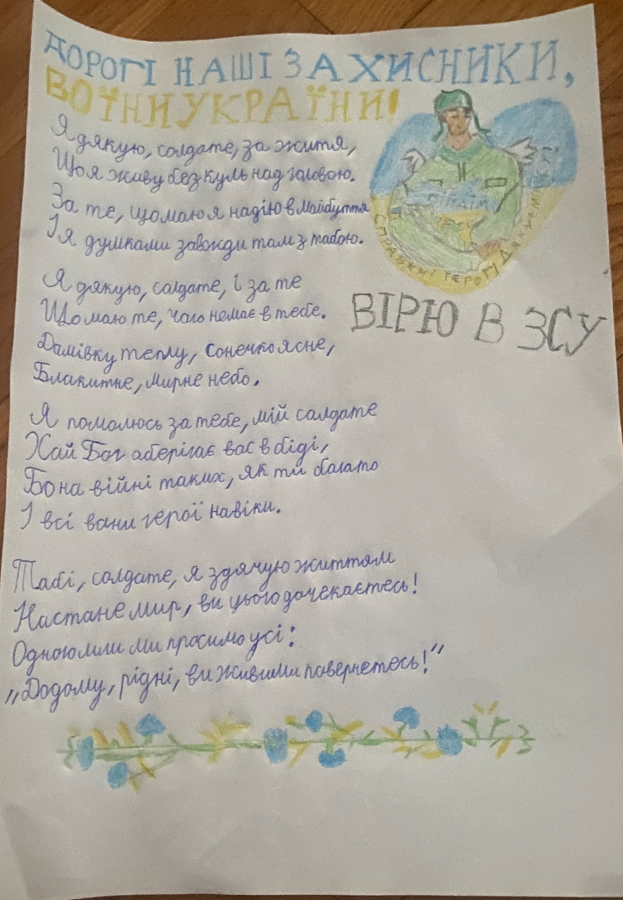 ДОРОГІ НАШІ ЗАХИСНИКИ,
ВОЇНИ УКРАЇНИ!
Я дякую, солдате, за життя,
Що я живу без куль над головою.
За те, що маю я надію в майбуття
І я думками завжди там з тобою.
Я дякую, солдате, і за те
Що маю те, чого немає в тебе.
Домівку теплу, сонечко ясне,
Блакитне, мирне небо.
Я помолюсь за тебе, мій солдате
Хай Бог оберігає вас в біді,
Бо на війні таких, як ти багато
І всі вони герої навіки.
Тобі, солдате, я здячую життям
Настане мир, ви цього дочекаєтесь!
Одного лиш ми просимо усі:
„Додому, рідні, ви живими повернетесь!"
СПРАВЖНІ ГЕРОЇ
ВІРЮ В ЗСУ